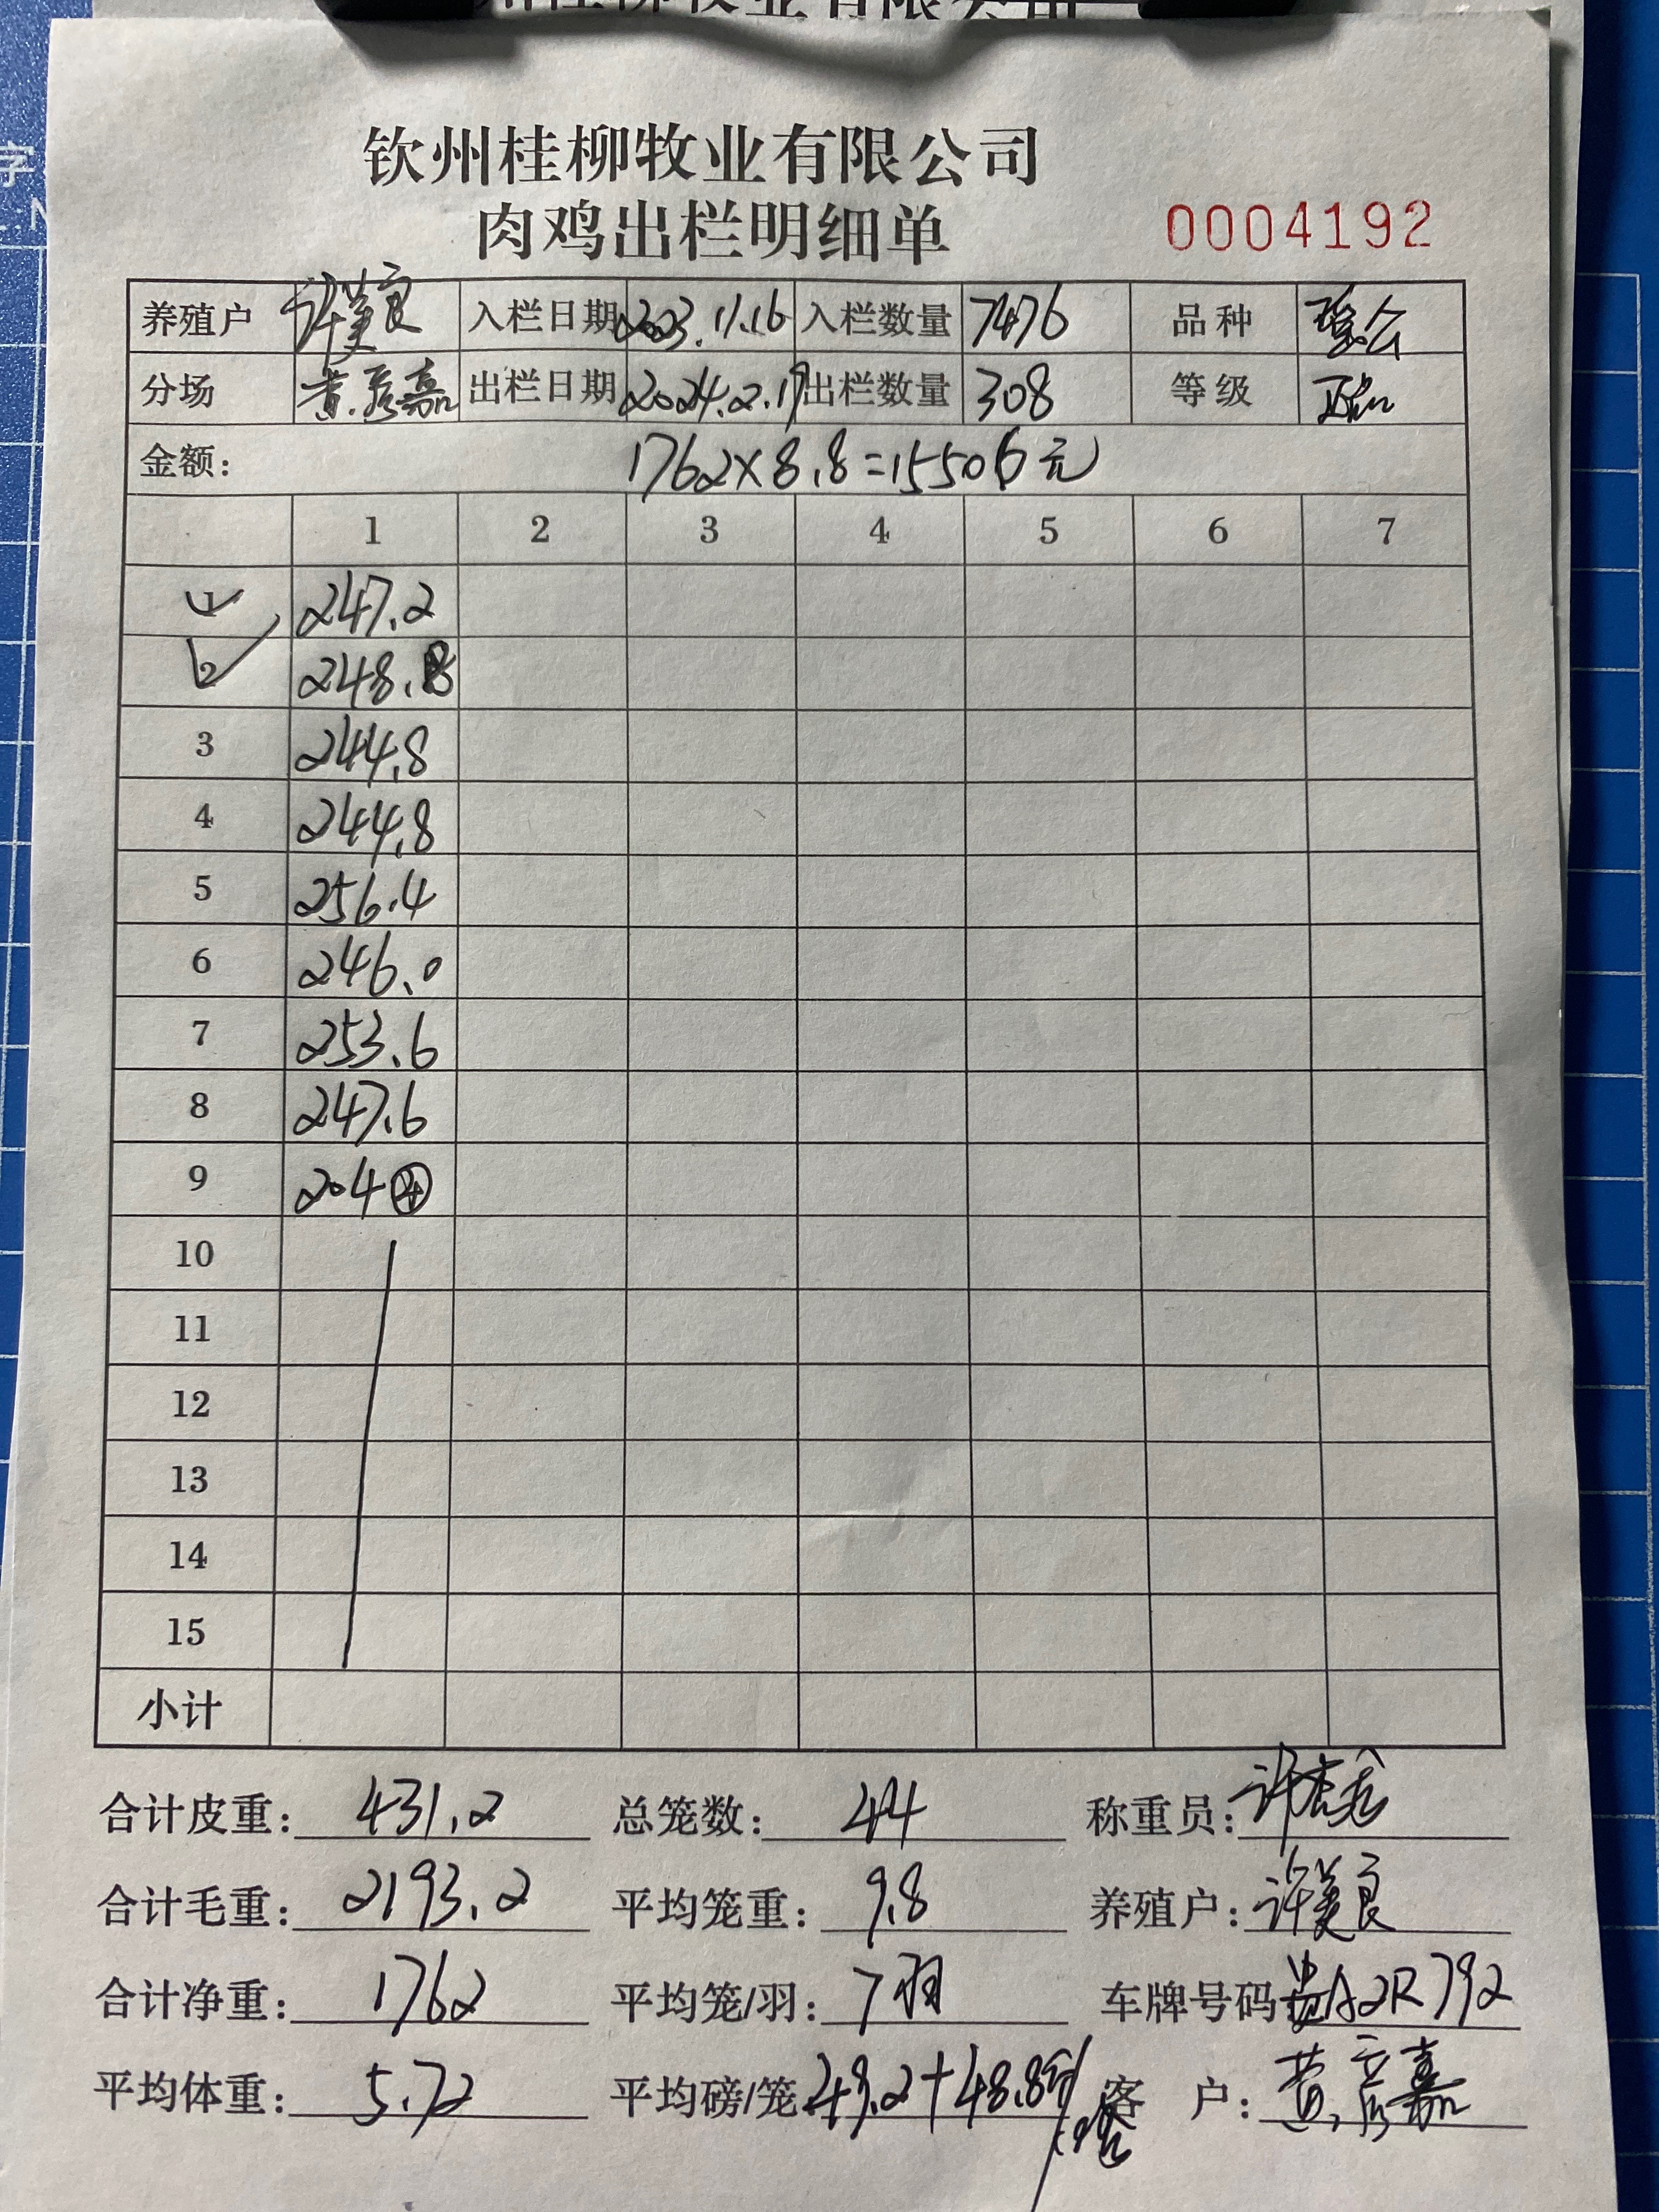 钦州桂柳牧业有限公司
肉鸡出栏明细单 0004192
养殖户 许美良 入栏日期 2023.11.16 入栏数量 7476 品种
分场 黄彦嘉 出栏日期 2024.2.17 出栏数量 308 等级
金额: 1762×8.8=15506元
1 2 3 4 5 6 7
1 247.2
2 248.8
3 244.8
4 244.8
5 256.4
6 246.0
7 253.6
8 247.6
9 204 ④
10
11
12
13
14
15
小计
合计皮重: 431.2 总笼数: 44 称重员:
合计毛重: 2193.2 平均笼重: 9.8 养殖户: 许美良
合计净重: 1762 平均笼/羽: 7羽 车牌号码 贵A2R792
平均体重: 5.72 平均磅/笼 49.2+48.8 客户: 黄彦嘉